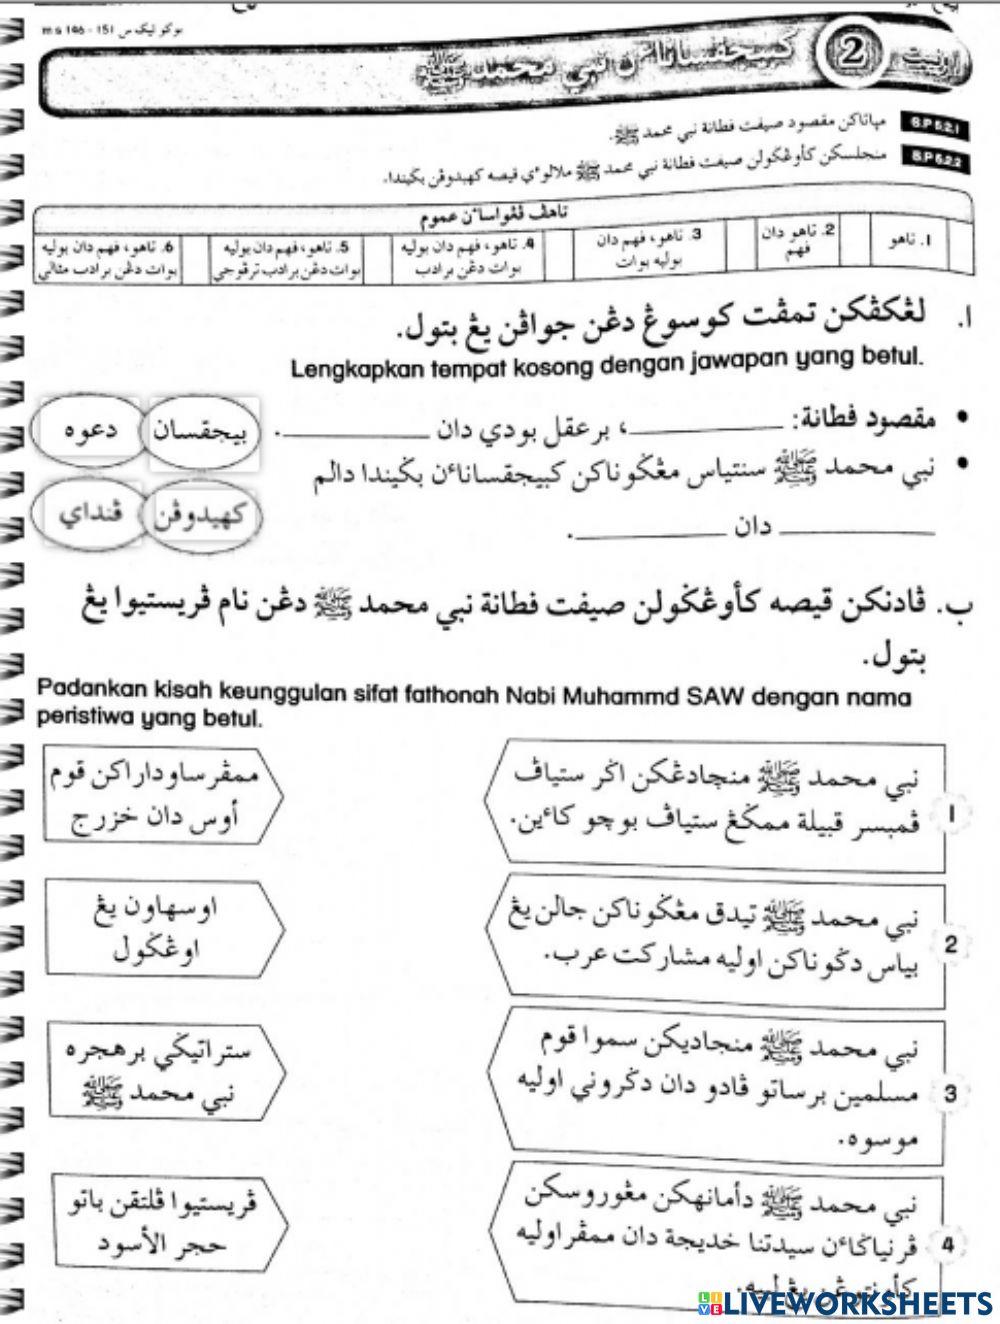 بوكو تيك س 151 - 146 m s
اونيت 2 كبيجقساناٴن نبي محمد ﷺ
S.P 5.2.1 مڽاتاكن مقصود صيفت فطانة نبي محمد ﷺ.
S.P 5.2.2 منجلسكن كأوڠݢولن صيفت فطانة نبي محمد ﷺ ملالوٴي قيصه كهيدوڤن بݢيندا.
تاهڤ ڤڠواساٴن عموم
1. تاهو
2. تاهو دان فهم
3. تاهو، فهم دان بوليه بوات
4. تاهو، فهم دان بوليه بوات دڠن برادب
5. تاهو، فهم دان بوليه بوات دڠن برادب ترڤوجي
6. تاهو، فهم دان بوليه بوات دڠن برادب مثالي
ا. لڠكڤكن تمڤت كوسوڠ دڠن جواڤن يڠ بتول.
Lengkapkan tempat kosong dengan jawapan yang betul.
• مقصود فطانة: ________، برعقل بودي دان ________.
• نبي محمد ﷺ سنتياس مڠݢوناكن كبيجقساناٴن بݢيندا دالم
________ دان ________.
بيجقسان
دعوه
كهيدوڤن
ڤنداي
ب. ڤادنكن قيصه كأوڠݢولن صيفت فطانة نبي محمد ﷺ دڠن نام ڤريستيوا يڠ
بتول.
Padankan kisah keunggulan sifat fathonah Nabi Muhammd SAW dengan nama
peristiwa yang betul.
1
نبي محمد ﷺ منچادڠكن اݢر ستياڤ
ڤمبسر قبيلة ممݢڠ ستياڤ بوچو كاٴين.
ممڤرساوداراكن قوم
أوس دان خزرج
2
نبي محمد ﷺ تيدق مڠݢوناكن جالن يڠ
بياس دݢوناكن اوليه مشاركت عرب.
اوسهاون يڠ
اوڠݢول
3
نبي محمد ﷺ منجاديكن سموا قوم
مسلمين برساتو ڤادو دان دݢروني اوليه
موسوه.
ستراتيݢي برهجره
نبي محمد ﷺ
4
نبي محمد ﷺ دأمانهكن مڠوروسكن
ڤرنياݢاٴن سيدتنا خديجة دان ممڤراوليه
كأونتوڠن يڠ لبيه.
ڤريستيوا ڤلتقن باتو
حجر الأسود
LIVEWORKSHEETS